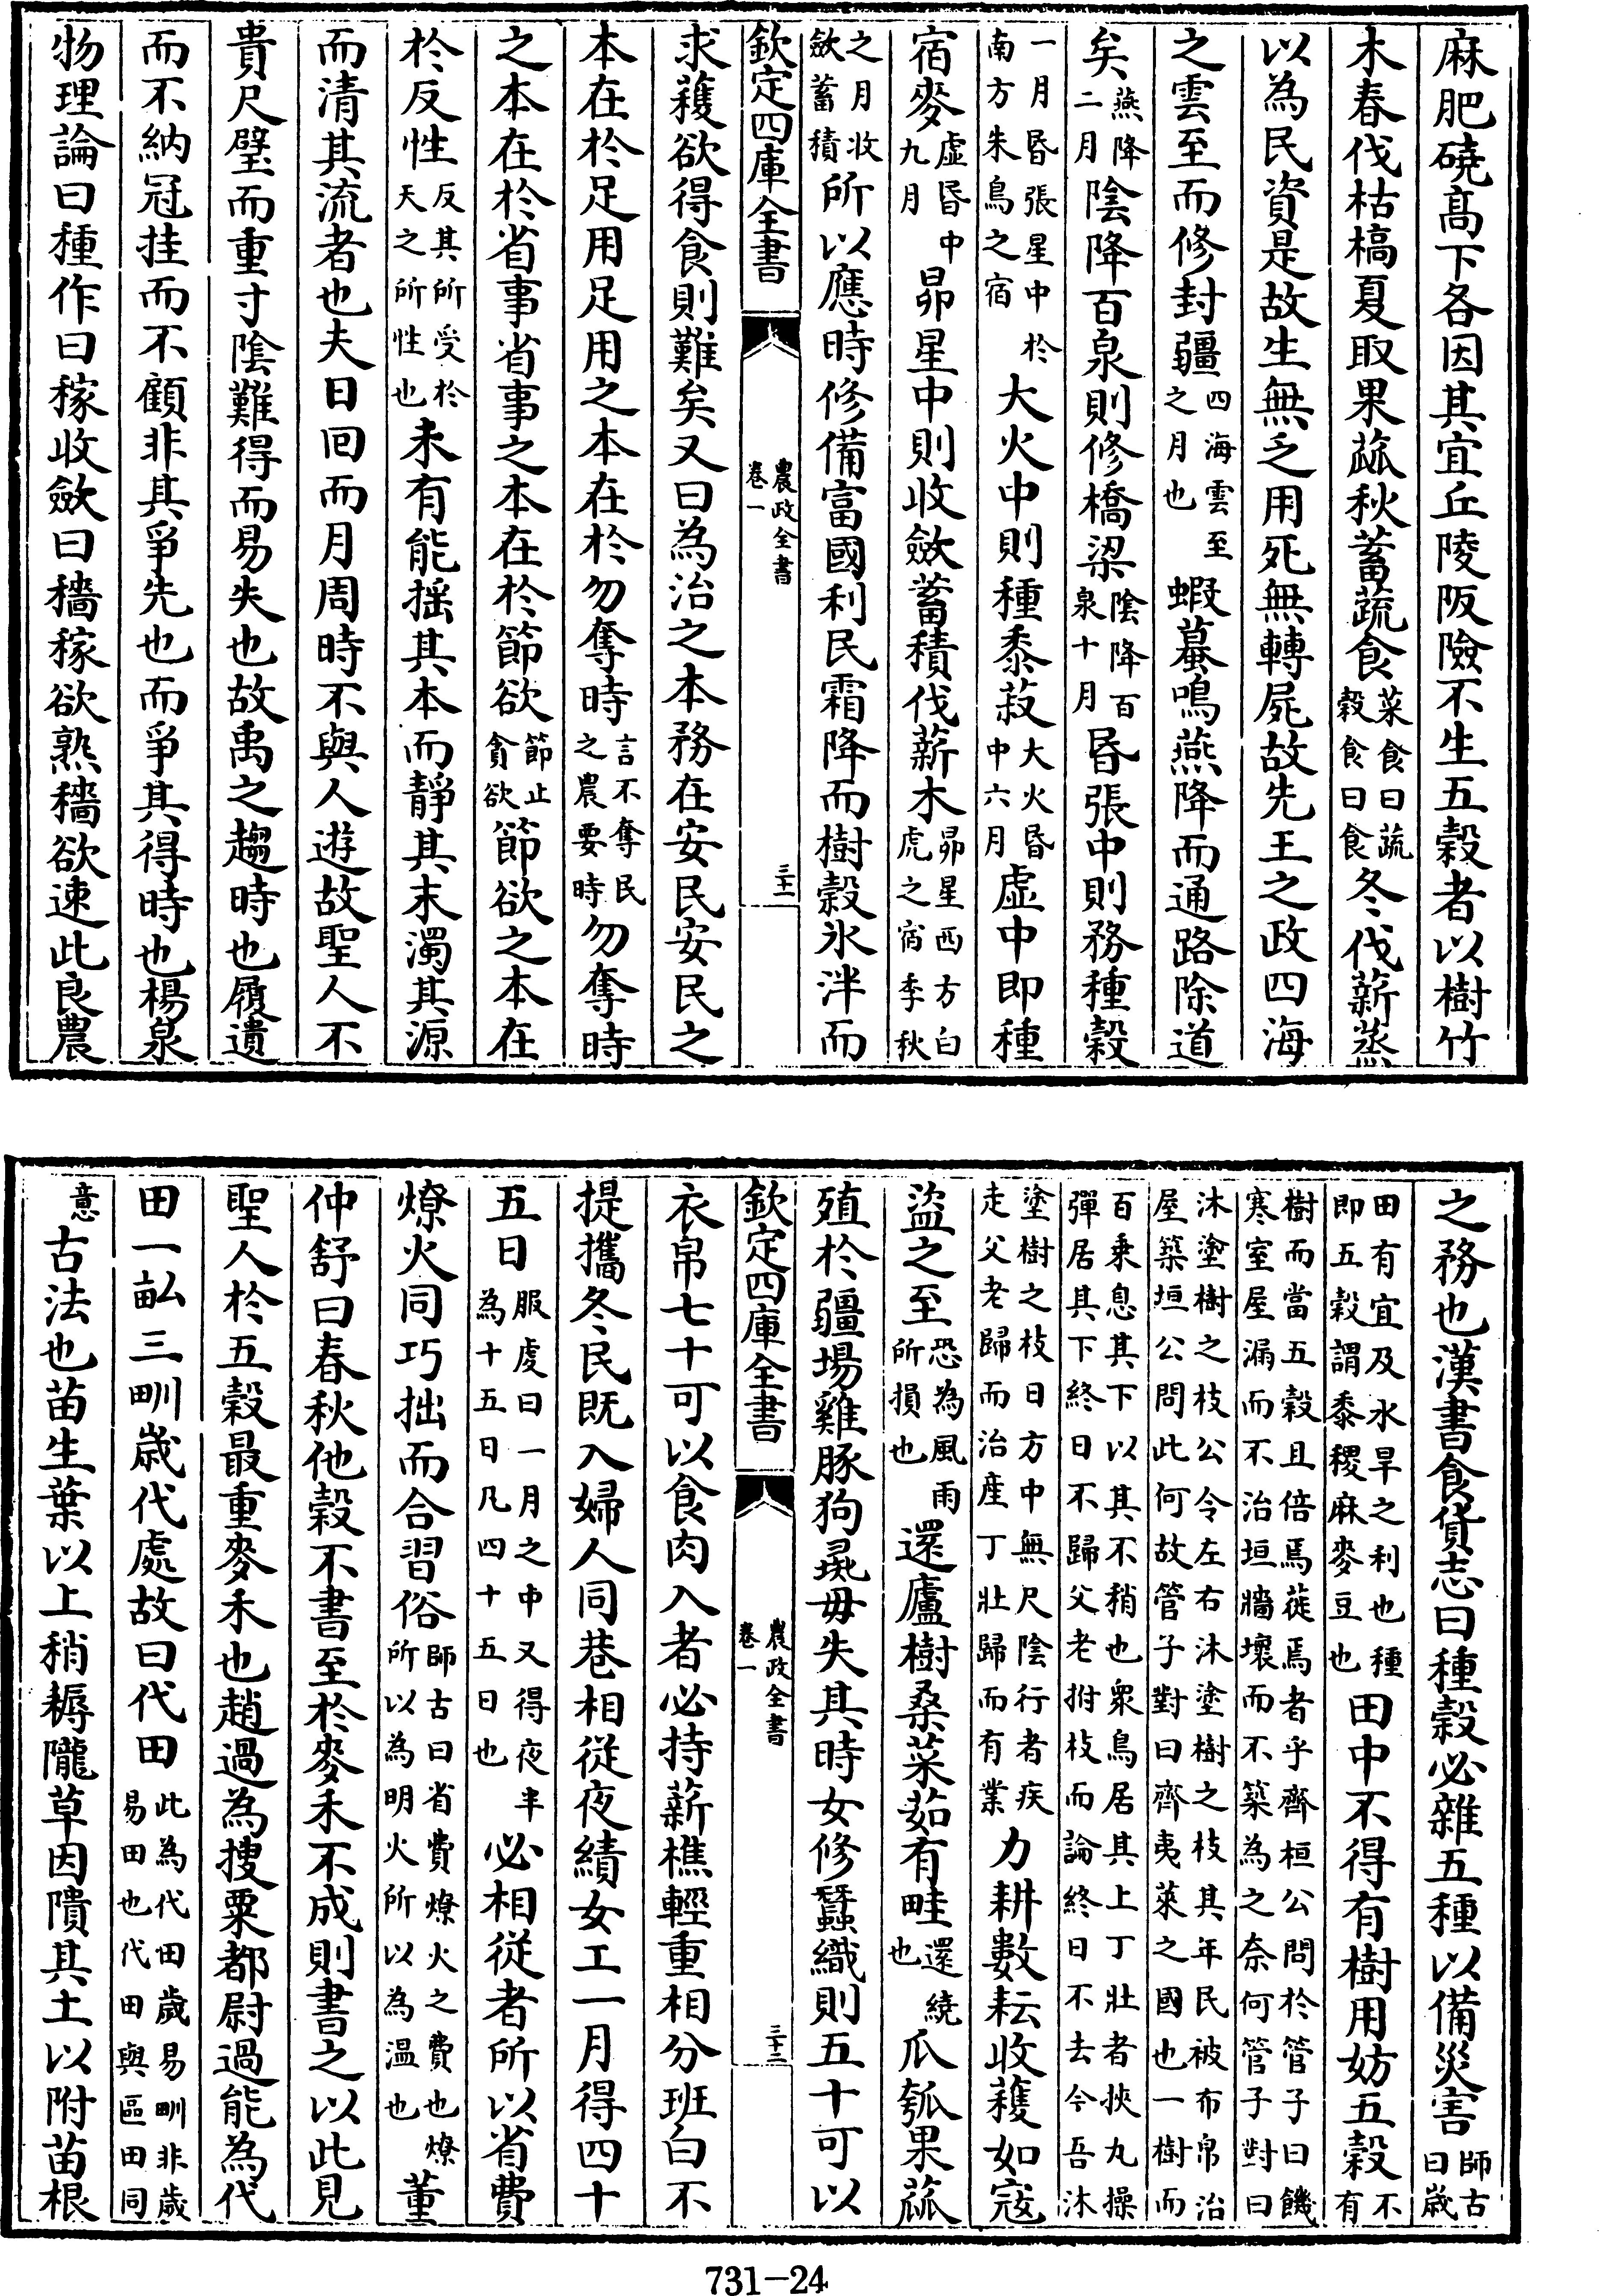 麻肥磽高下各因其宜丘陵阪險不生五榖者以樹竹
木春伐枯槁夏取果蓏秋蓄蔬食菜食曰蔬榖食曰食冬伐薪蒸
以為民資是故生無乏用死無轉屍故先王之政四海
之雲至而修封疆四海雲至之月也蝦蟇鳴燕降而通路除道
矣燕降二月隂降百泉則修橋梁隂降百泉十月昏張中則務種榖
一月昏張星中於南方朱鳥之宿大火中則種黍菽大火昏中六月虚中即種
宿麥虚昏中九月昴星中則收斂蓄積伐薪木昴星西方白虎之宿季秋
之月收斂蓄積所以應時修備富國利民霜降而樹榖氷泮而
欽定四庫全書
農政全書
卷一
三十一
求穫欲得食則難矣又曰為治之本務在安民安民之
本在於足用足用之本在於勿奪時言不奪民之農要時勿奪時
之本在於省事省事之本在於節欲節止貪欲節欲之本在
於反性反其所受於天之所性也未有能揺其本而靜其末濁其源
而清其流者也夫日囘而月周時不與人遊故聖人不
貴尺璧而重寸隂難得而易失也故禹之趨時也履遺
而不納冠挂而不顧非其爭先也而爭其得時也楊泉
物理論曰種作曰稼收斂曰穡稼欲熟穡欲速此良農
之務也漢書食貨志曰種榖必雜五種以備災害師古曰歳
田有宜及水旱之利也種即五榖謂黍稷麻麥豆也田中不得有樹用妨五榖不有
樹而當五榖且倍焉蓰焉者乎齊桓公問於管子曰饑寒室屋漏而不治垣牆壞而不築為之奈何管子對曰
沐塗樹之枝公令左右沐塗樹之枝其年民被布帛治屋築垣公問此何故管子對曰齊夷萊之國也一樹而
百乗息其下以其不稍也衆鳥居其上丁壯者挾丸操彈居其下終日不歸父老拊枝而論終日不去今吾沐
塗樹之枝日方中無尺隂行者疾走父老歸而治産丁壯歸而有業力耕數耘收穫如寇
盜之至恐為風雨所損也還廬樹桑菜茹有畦還繞也瓜瓠果蓏
殖於疆埸雞豚狗彘毋失其時女修蠶織則五十可以
欽定四庫全書
農政全書
卷一
三十二
衣帛七十可以食肉入者必持薪樵輕重相分班白不
提攜冬民既入婦人同巷相從夜績女工一月得四十
五日服䖍曰一月之中又得夜半為十五日凡四十五日也必相從者所以省費
燎火同巧拙而合習俗師古曰省費燎火之費也燎所以為明火所以為温也董
仲舒曰春秋他榖不書至於麥禾不成則書之以此見
聖人於五榖最重麥禾也趙過為搜粟都尉過能為代
田一畝三甽歳代處故曰代田此為代田歳易甽非歳易田也代田與區田同
意古法也苗生葉以上稍耨隴草因隤其土以附苗根
731-24